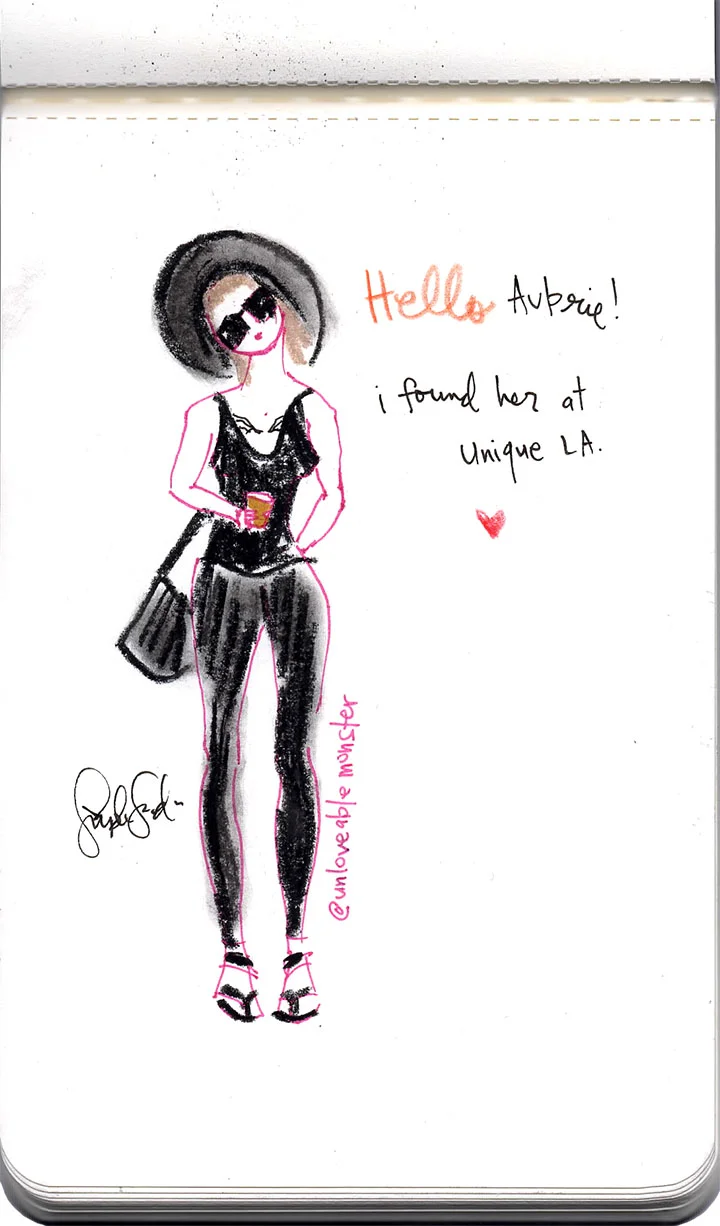 Hello Aubrie!
i found her at
unique LA.
@unloveable monster